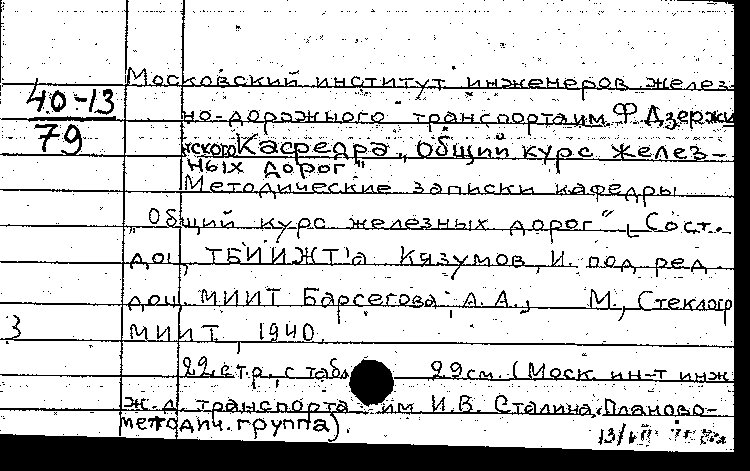 Московский институт инженеров желез-
40-13
79
но-дорожного транспорта им. Ф. Дзержи
нского Кафедра „Общий курс желез-
ных дорог"
Методические записки кафедры
„Общий курс железных дорог" [Сост.
доц. ТБИИЖТ'а Кязумов, И. под ред
доц. МИИТ Барсегова, А. А., М., Стеклогр
3
МИИТ, 1940.
22 стр., с табл. 29 см. (Моск. ин-т инж
ж.д. транспорта им И.В. Сталина. Планово-
методич. группа).